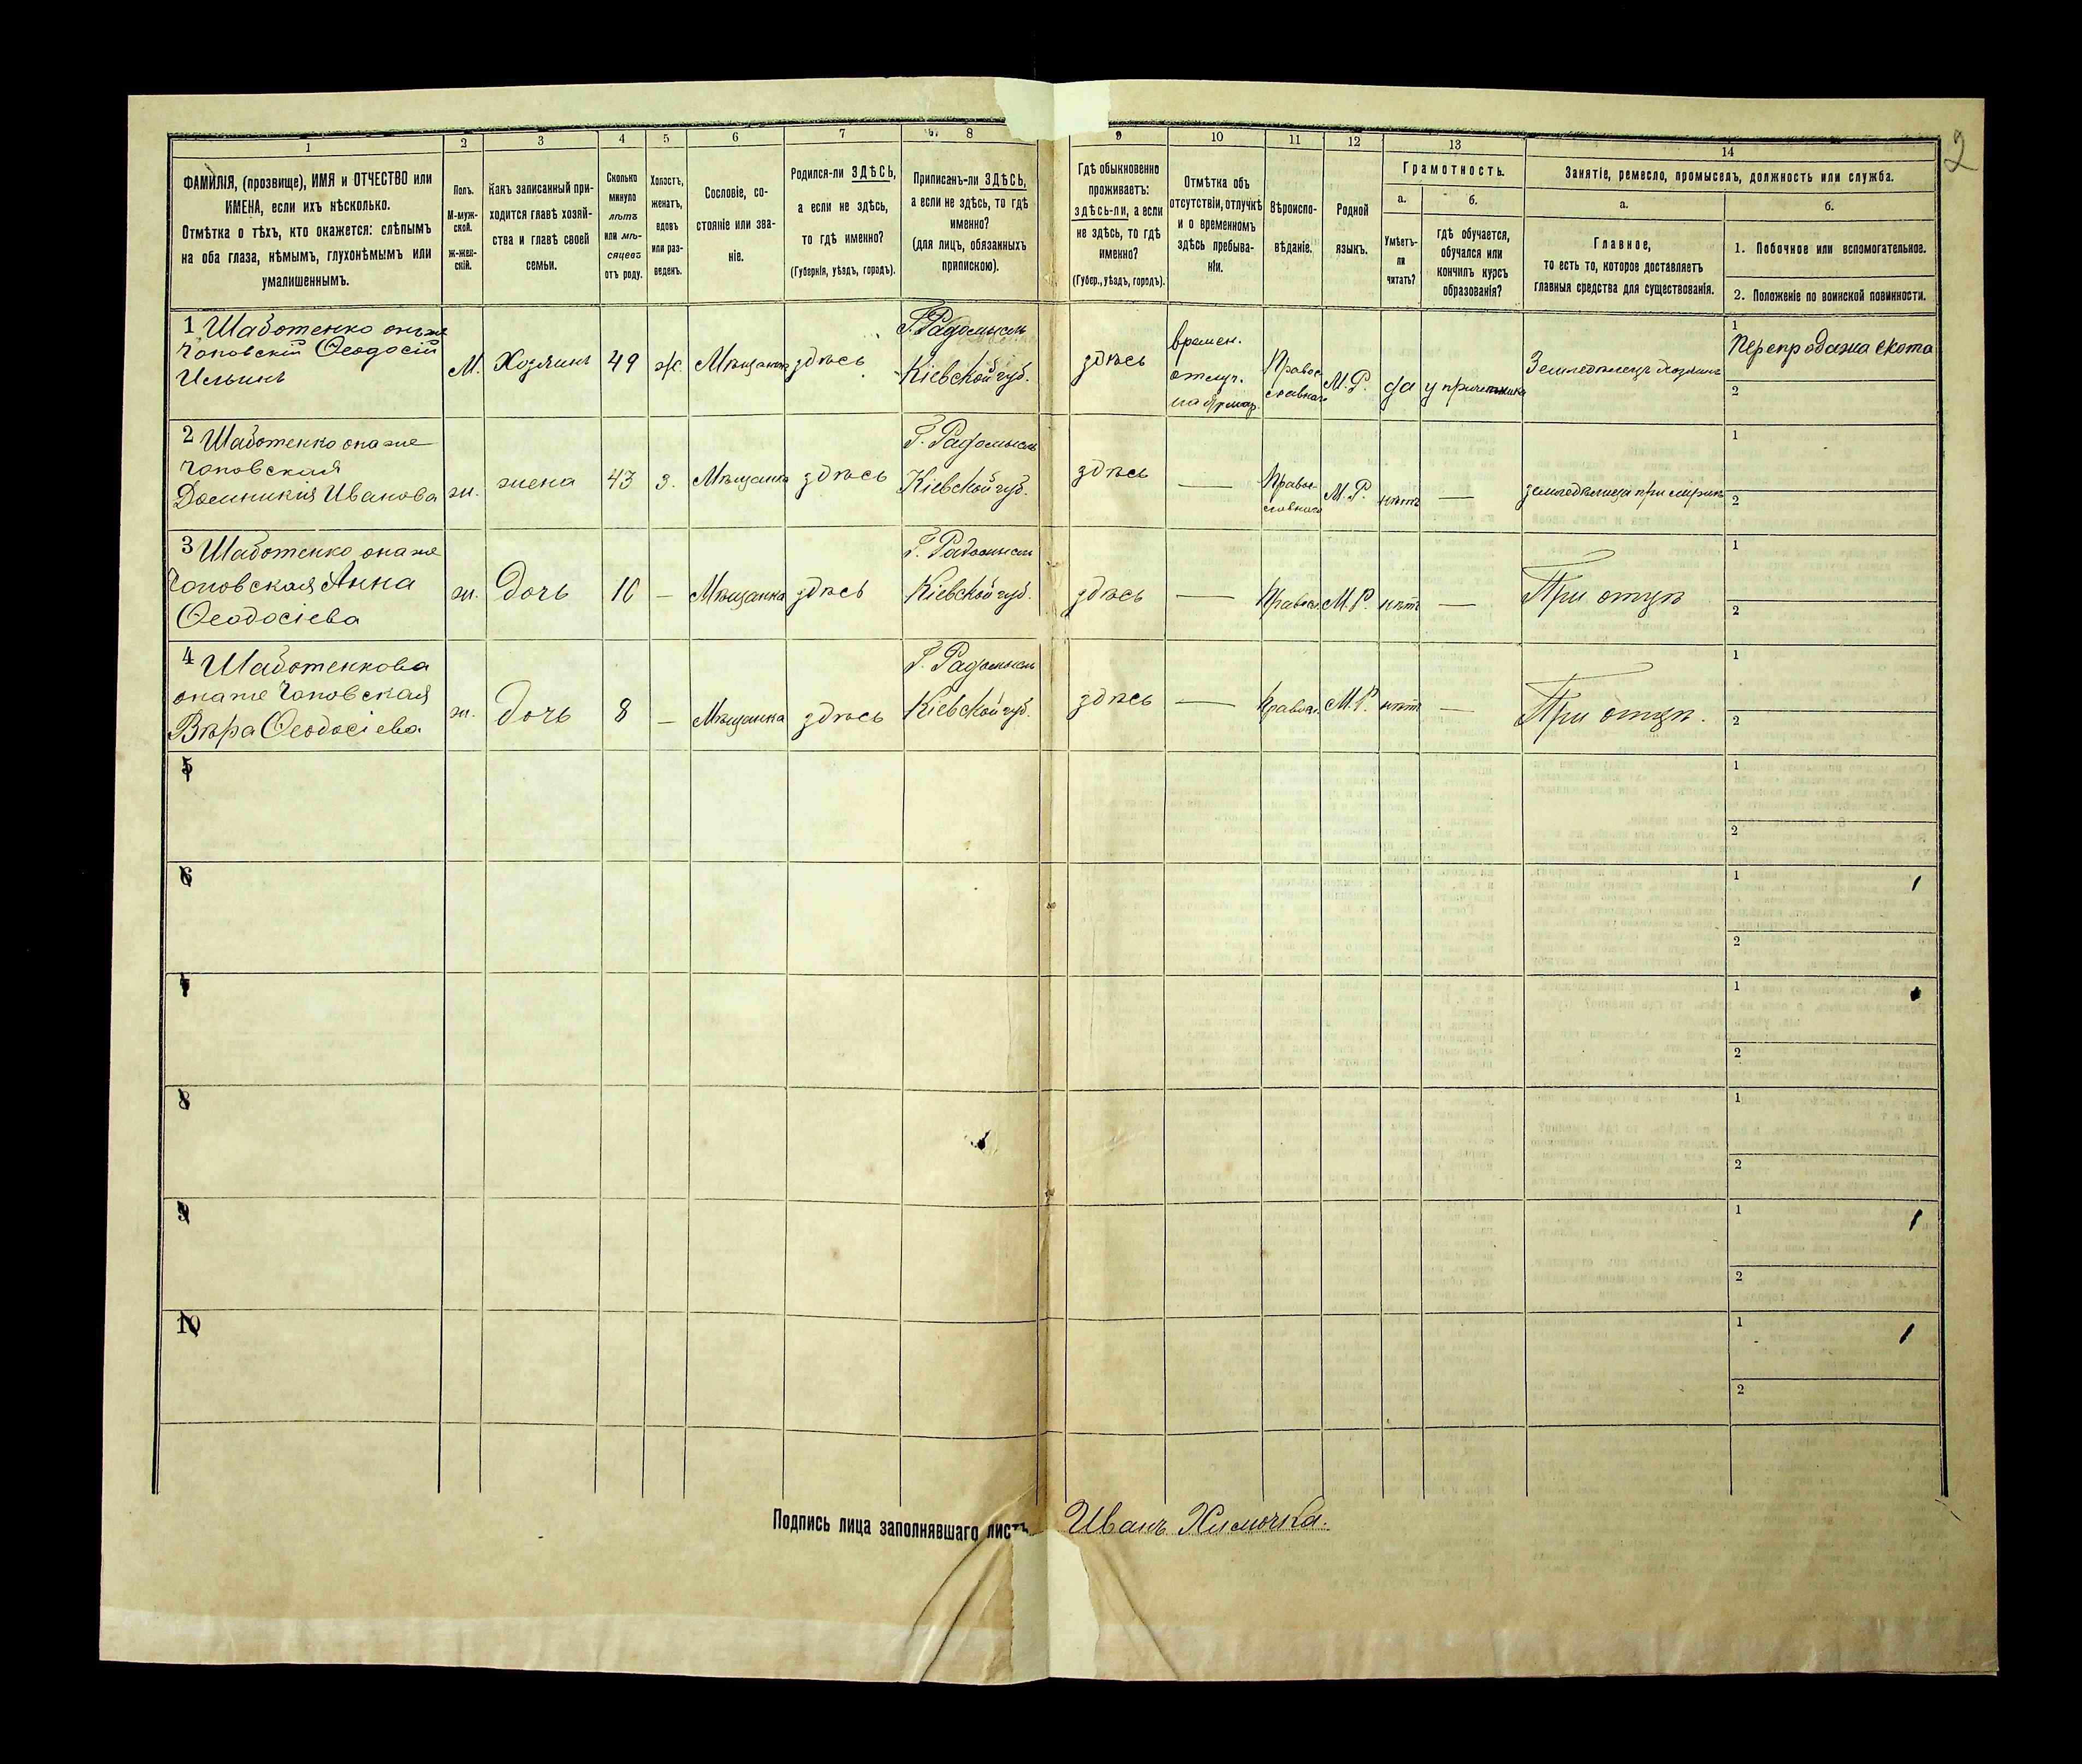 2
1
2
3
4
5
6
7
8
9
10
11
12
13
14
ФАМИЛІЯ, (прозвище), ИМЯ и ОТЧЕСТВО или
ИМЕНА, если ихъ нѣсколько.
Отмѣтка о тѣхъ, кто окажется: слѣпымъ
на оба глаза, нѣмымъ, глухонѣмымъ или
умалишеннымъ.
Полъ.
М-муж-
ской.
ж-жен-
скій.
Какъ записанный при-
ходится главѣ хозяй-
ства и главѣ своей
семьи.
Сколько
минуло
лѣтъ
или мѣ-
сяцевъ
отъ роду.
Холостъ,
женатъ,
вдовъ
или раз-
веденъ.
Сословіе, со-
стояніе или зва-
ніе.
Родился-ли ЗДѢСЬ,
а если не здѣсь,
то гдѣ именно?
(Губернія, уѣздъ, городъ).
Приписанъ-ли ЗДѢСЬ,
а если не здѣсь, то гдѣ
именно?
(для лицъ, обязанныхъ
припискою).
Гдѣ обыкновенно
проживаетъ:
здѣсь-ли, а если
не здѣсь, то гдѣ
именно?
(Губер., уѣздъ, городъ).
Отмѣтка объ
отсутствіи, отлучкѣ
и о временномъ
здѣсь пребыва-
ніи.
Вѣроиспо-
вѣданіе.
Родной
языкъ.
Грамотность.
а.
Умѣетъ-
ли
читать?
б.
гдѣ обучается,
обучался или
кончилъ курсъ
образованія?
Занятіе, ремесло, промыселъ, должность или служба.
а.
Главное,
то есть то, которое доставляетъ
главныя средства для существованія.
б.
1. Побочное или вспомогательное.
2. Положеніе по воинской повинности.
1 Шаботенко онъ же
Чоповскій Ѳеодосій
Ильинъ
М.
Хозяинъ
49
ж.
Мѣщанинъ
здѣсь
Г. Радомысль
Кіевской губ.
здѣсь
времен.
отлуч.
на ярмар.
Правос
славное
М.Р.
да
у причетника
Земледѣлецъ хозяинъ
1
Перепродажа скота
2
2 Шаботенко она же
Чоповская
Домникія Иванова
ж.
жена
43
з.
Мѣщанка
здѣсь
Г. Радомысль
Кіевской губ.
здѣсь
—
Правос
славное
М.Р.
нѣтъ
—
земледѣлица при
1
2
3 Шаботенко она же
Чоповская Анна
Ѳеодосіева
ж.
дочь
10
—
Мѣщанка
здѣсь
Г. Радомысль
Кіевской губ.
здѣсь
—
Правосл.
М.Р.
нѣтъ
—
При отцѣ
1
2
4 Шаботенкова
она же Чоповская
Вѣра Ѳеодосіева
ж.
дочь
8
—
Мѣщанка
здѣсь
Г. Радомысль
Кіевской губ.
здѣсь
—
Правосл.
М.Р.
нѣтъ
—
При отцѣ.
1
2
5
1
2
6
1
2
7
1
2
8
1
2
9
1
2
10
1
2
Подпись лица заполнявшаго листъ
Иванъ Химочка.